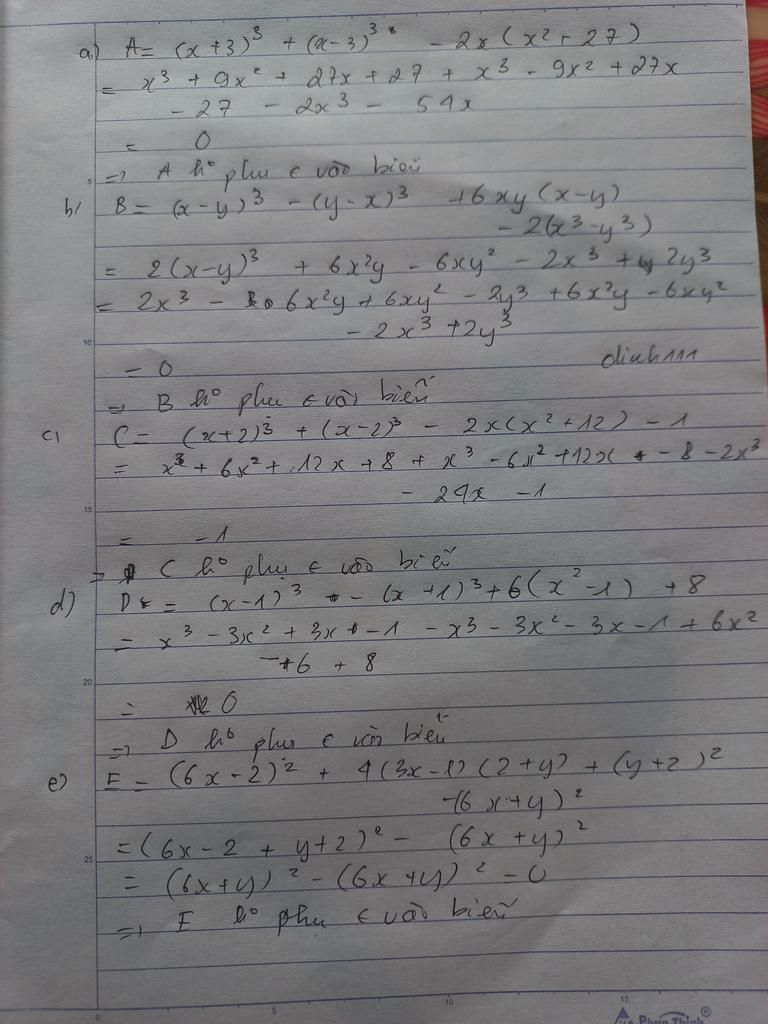 a) A = (x+3)³ + (x-3)³ - 2x(x²+27)
= x³ + 9x² + 27x + 27 + x³ - 9x² + 27x
- 27 - 2x³ - 54x
= 0
=> A ko phụ ∈ vào biến
b) B = (x-y)³ - (y-x)³ + 6xy(x-y)
- 2(x³-y³)
= 2(x-y)³ + 6x²y - 6xy² - 2x³ + 2y³
= 2x³ - 6x²y + 6xy² - 2y³ + 6x²y - 6xy²
- 2x³ + 2y³
= 0
dinh111
=> B ko phụ ∈ vào biến
c) C = (x+2)³ + (x-2)³ - 2x(x²+12) - 1
= x³ + 6x² + 12x + 8 + x³ - 6x² + 12x - 8 - 2x³
- 24x - 1
= -1
=> C ko phụ ∈ vào biến
d) D = (x-1)³ - (x+1)³ + 6(x²-1) + 8
= x³ - 3x² + 3x - 1 - x³ - 3x² - 3x - 1 + 6x²
- 6 + 8
= 0
=> D ko phụ ∈ vào biến
e) E = (6x-2)² + 4(3x-1)(2+y) + (y+2)²
-(6x+y)²
= (6x-2 + y+2)² - (6x+y)²
= (6x+y)² - (6x+y)² = 0
=> E ko phụ ∈ vào biến